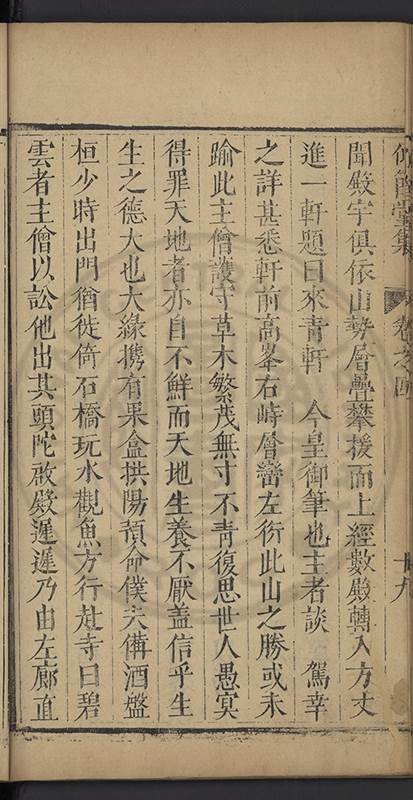 堂集 卷之四 十九
聞殿宇俱依山勢層疊攀援而上經數殿轉入方丈
進一軒題曰來青軒 今皇御筆也主者談 駕幸
之詳甚悉軒前高峯右峙層巒左衍此山之勝或未
踰此主僧護守草木繁茂無寸不青復思世人愚冥
得罪天地者亦自不鮮而天地生養不厭蓋信乎生
生之德大也大緣携有果盒拱陽預命僕夫備酒盤
桓少時出門猶徙倚石橋玩水觀魚方行赴寺曰碧
雲者主僧以訟他出其頭陀啟殿遲遲乃由左廊直